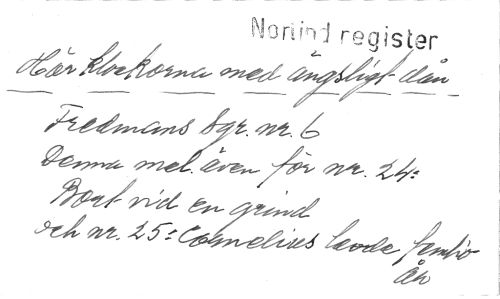 Norlind register
Hör klockorna med ängsligt dån
Fredmans sgr. nr. 6
Denna mel. även för nr. 24:
Bort vid en grind
och nr. 25: Cornelius levde femtio
år